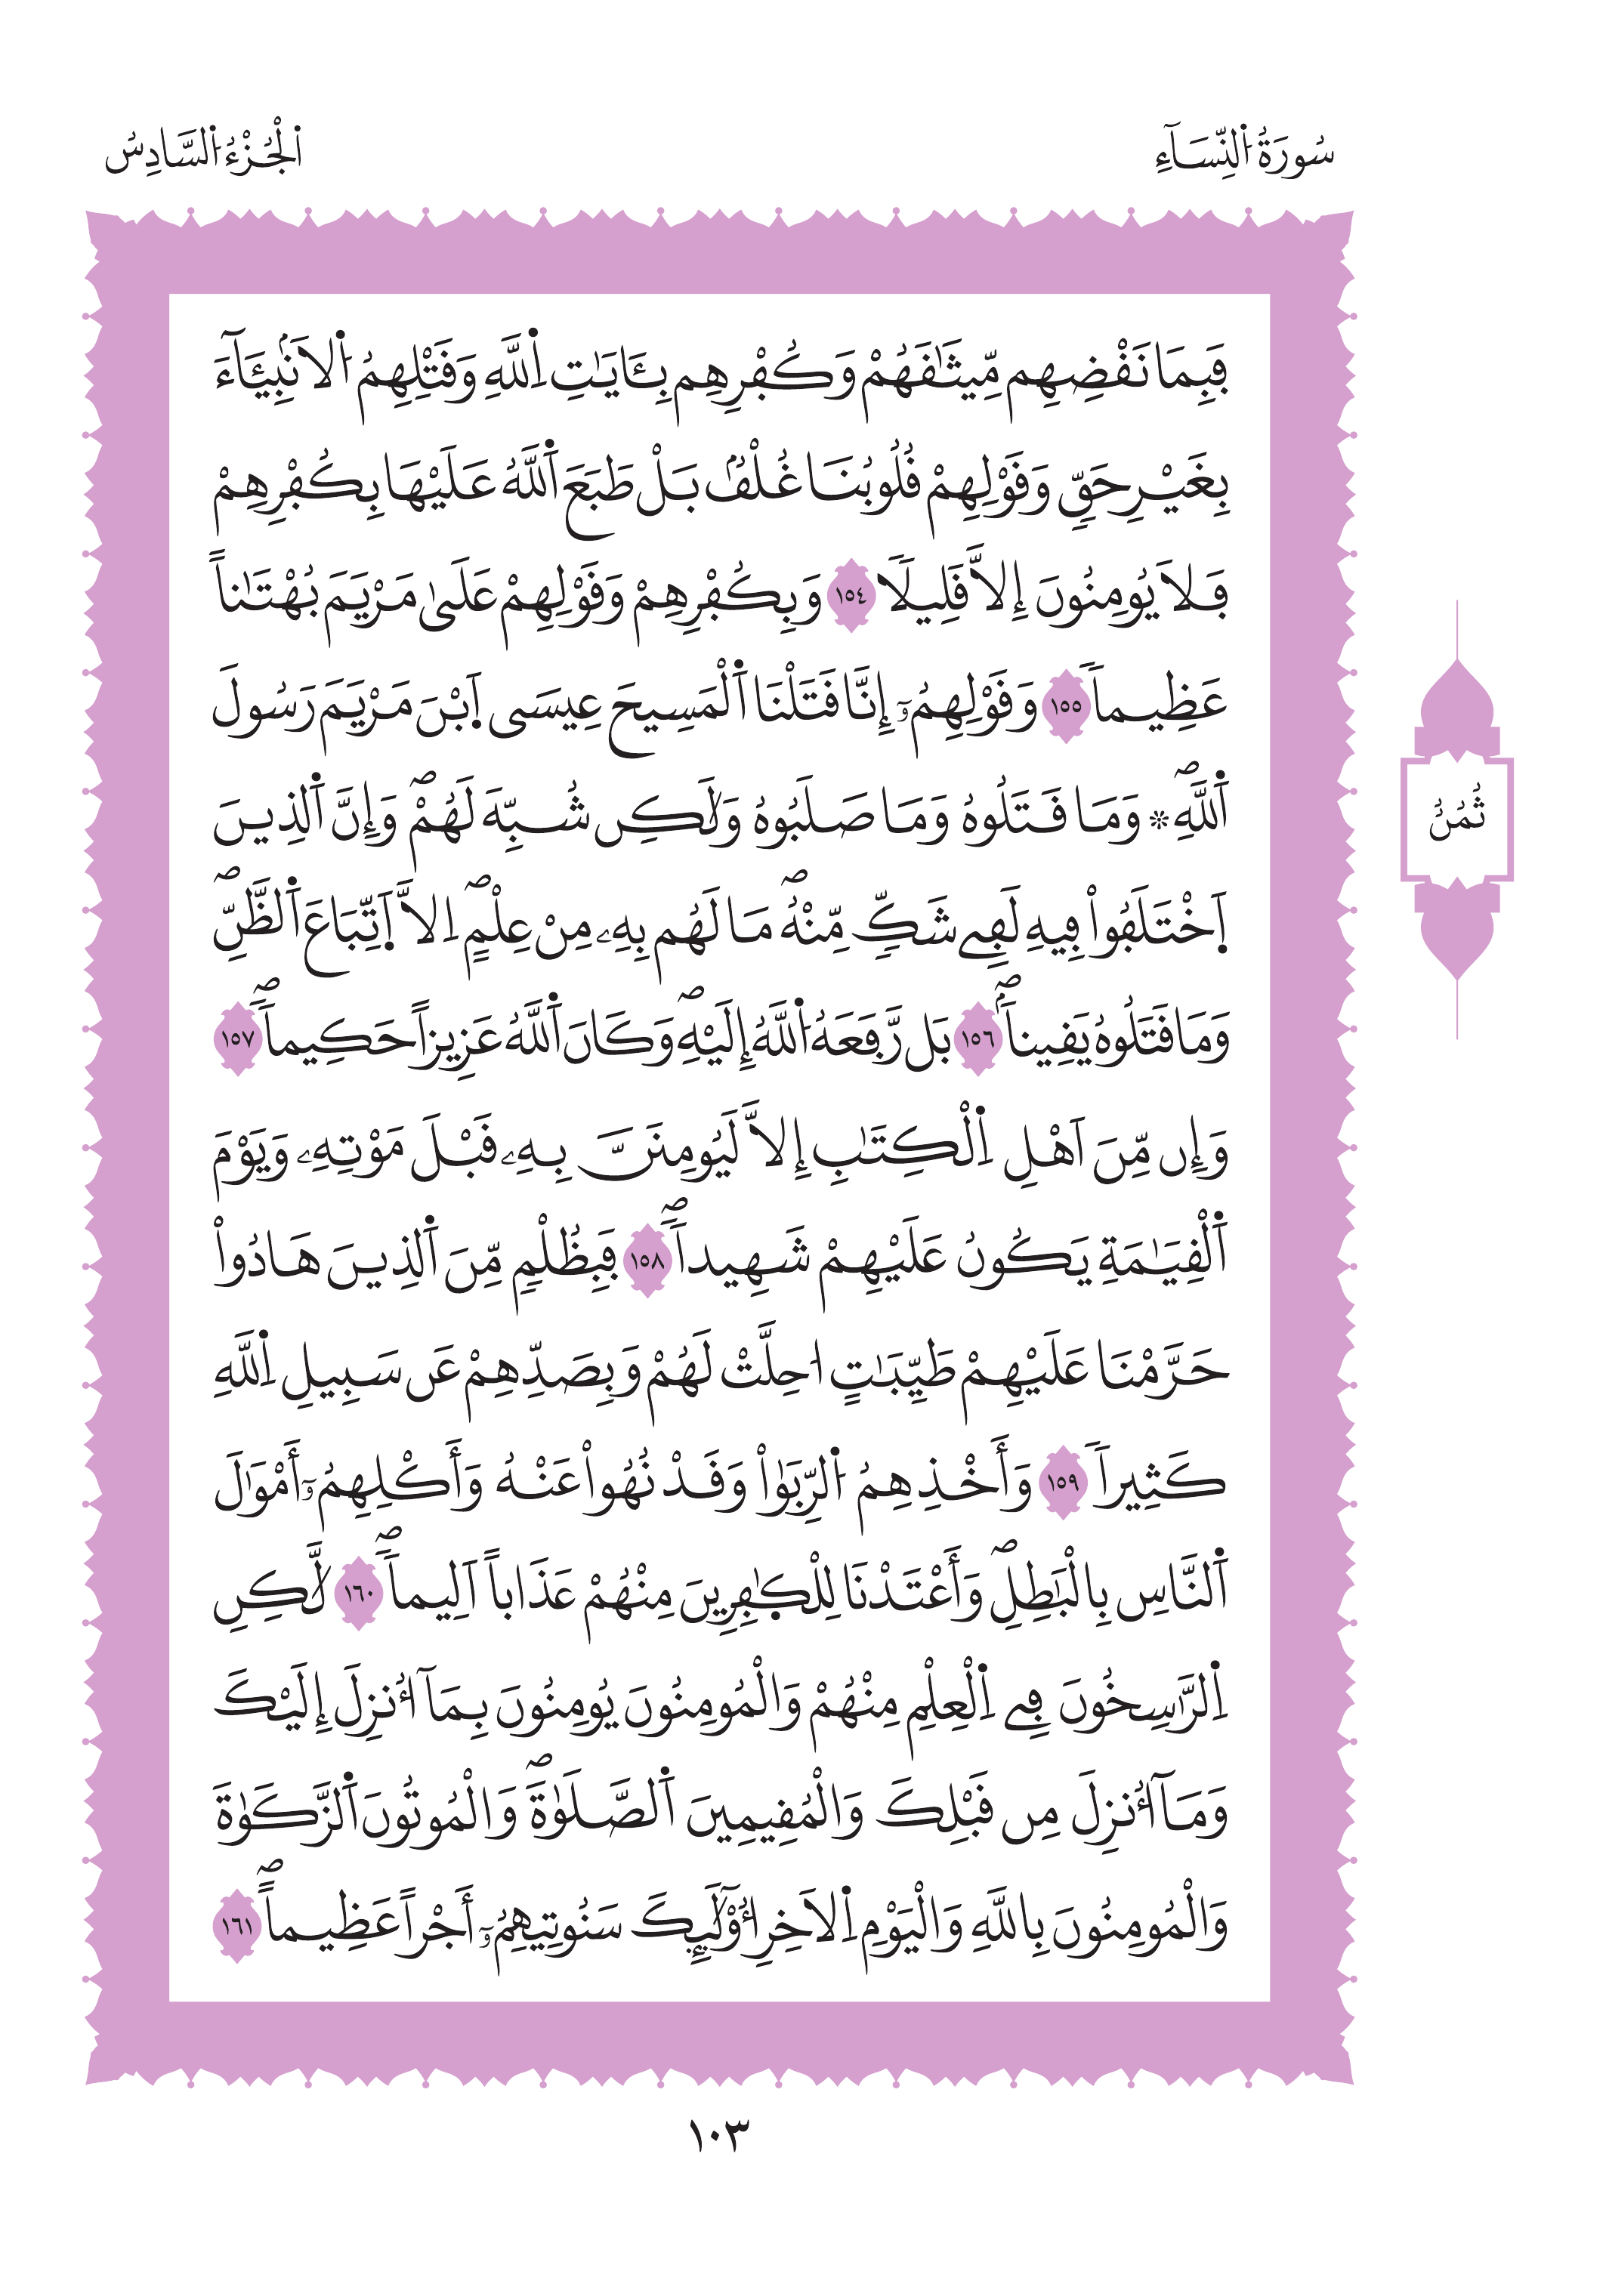 سُورَةُ اُ۬لنِّسَآءِ
اُ۬لْجُزْءُ اُ۬لسَّادِسُ
فَبِمَا نَقْضِهِم مِّيثَٰقَهُمْ وَكُفْرِهِم بِـَٔايَٰتِ اِ۬للَّهِ وَقَتْلِهِمُ اُ۬لَانۢبِيَآءَ
بِغَيْرِ حَقّٖ وَقَوْلِهِمْ قُلُوبُنَا غُلْفُۢ بَلْ طَبَعَ اَ۬للَّهُ عَلَيْهَا بِكُفْرِهِمْ
فَلَا يُومِنُونَ إِلَّا قَلِيلٗا ١٥٤ وَبِكُفْرِهِمْ وَقَوْلِهِمْ عَلَىٰ مَرْيَمَ بُهْتَٰناً
عَظِيماٗ ١٥٥ وَقَوْلِهِمُۥٓ إِنَّا قَتَلْنَا اَ۬لْمَسِيحَ عِيسَى اَ۪بْنَ مَرْيَمَ رَسُولَ
اَ۬للَّهِۖ ۞ وَمَا قَتَلُوهُ وَمَا صَلَبُوهُ وَلَٰكِن شُبِّهَ لَهُمْۖ وَإِنَّ اَ۬لذِينَ
اَ۪خْتَلَفُواْ فِيهِ لَفِے شَكّٖ مِّنْهُۖ مَا لَهُم بِهِۦ مِنْ عِلْمٍ اِلَّا اَ۪تِّبَاعَ اَ۬لظَّنِّۖ
وَمَا قَتَلُوهُ يَقِيناَۢۖ ١٥٦ بَل رَّفَعَهُ اُ۬للَّهُ إِلَيْهِۖ وَكَانَ اَ۬للَّهُ عَزِيزاً حَكِيماٗۖ ١٥٧
وَإِن مِّنَ اَهْلِ اِ۬لْكِتَٰبِ إِلَّا لَيُومِنَنَّ بِهِۦ قَبْلَ مَوْتِهِۦ وَيَوْمَ
اَ۬لْقِيَٰمَةِ يَكُونُ عَلَيْهِمْ شَهِيداٗۖ ١٥٨ فَبِظُلْمٖ مِّنَ اَ۬لذِينَ هَادُواْ
حَرَّمْنَا عَلَيْهِمْ طَيِّبَٰتٍ ا۟حِلَّتْ لَهُمْ وَبِصَدِّهِمْ عَن سَبِيلِ اِ۬للَّهِ
كَثِيراٗ ١٥٩ وَأَخْذِهِمُ اُ۬لرِّبَوٰاْ وَقَدْ نُهُواْ عَنْهُ وَأَكْلِهِمُۥٓ أَمْوَٰلَ
اَ۬لنَّاسِ بِالْبَٰطِلِۖ وَأَعْتَدْنَا لِلْكٰ۪فِرِينَ مِنْهُمْ عَذَاباً اَلِيماٗۖ ١٦٠ لَّٰكِنِ
اِ۬لرَّٰسِخُونَ فِے اِ۬لْعِلْمِ مِنْهُمْ وَالْمُومِنُونَ يُومِنُونَ بِمَآ أُنزِلَ إِلَيْكَ
وَمَآ أُنزِلَ مِن قَبْلِكَ وَالْمُقِيمِينَ اَ۬لصَّلَوٰةَۖ وَالْمُوتُونَ اَ۬لزَّكَوٰةَ
وَالْمُومِنُونَ بِاللَّهِ وَالْيَوْمِ اِ۬لَاخِرِ أُوْلَٰٓئِكَ سَنُوتِيهِمُۥٓ أَجْراً عَظِيماًۖ ١٦١
ثُمُنُ
١٠٣